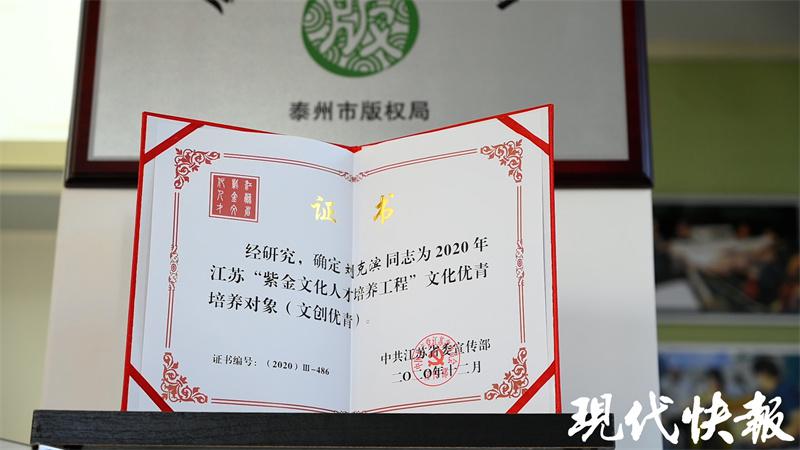 版
泰州市版权局
证书
经研究，确定刘克滨同志为2020年
江苏“紫金文化人才培养工程”文化优青
培养对象（文创优青）。
证书编号：（2020）Ⅲ-486
中共江苏省委宣传部
二〇二〇年十二月
现代快報